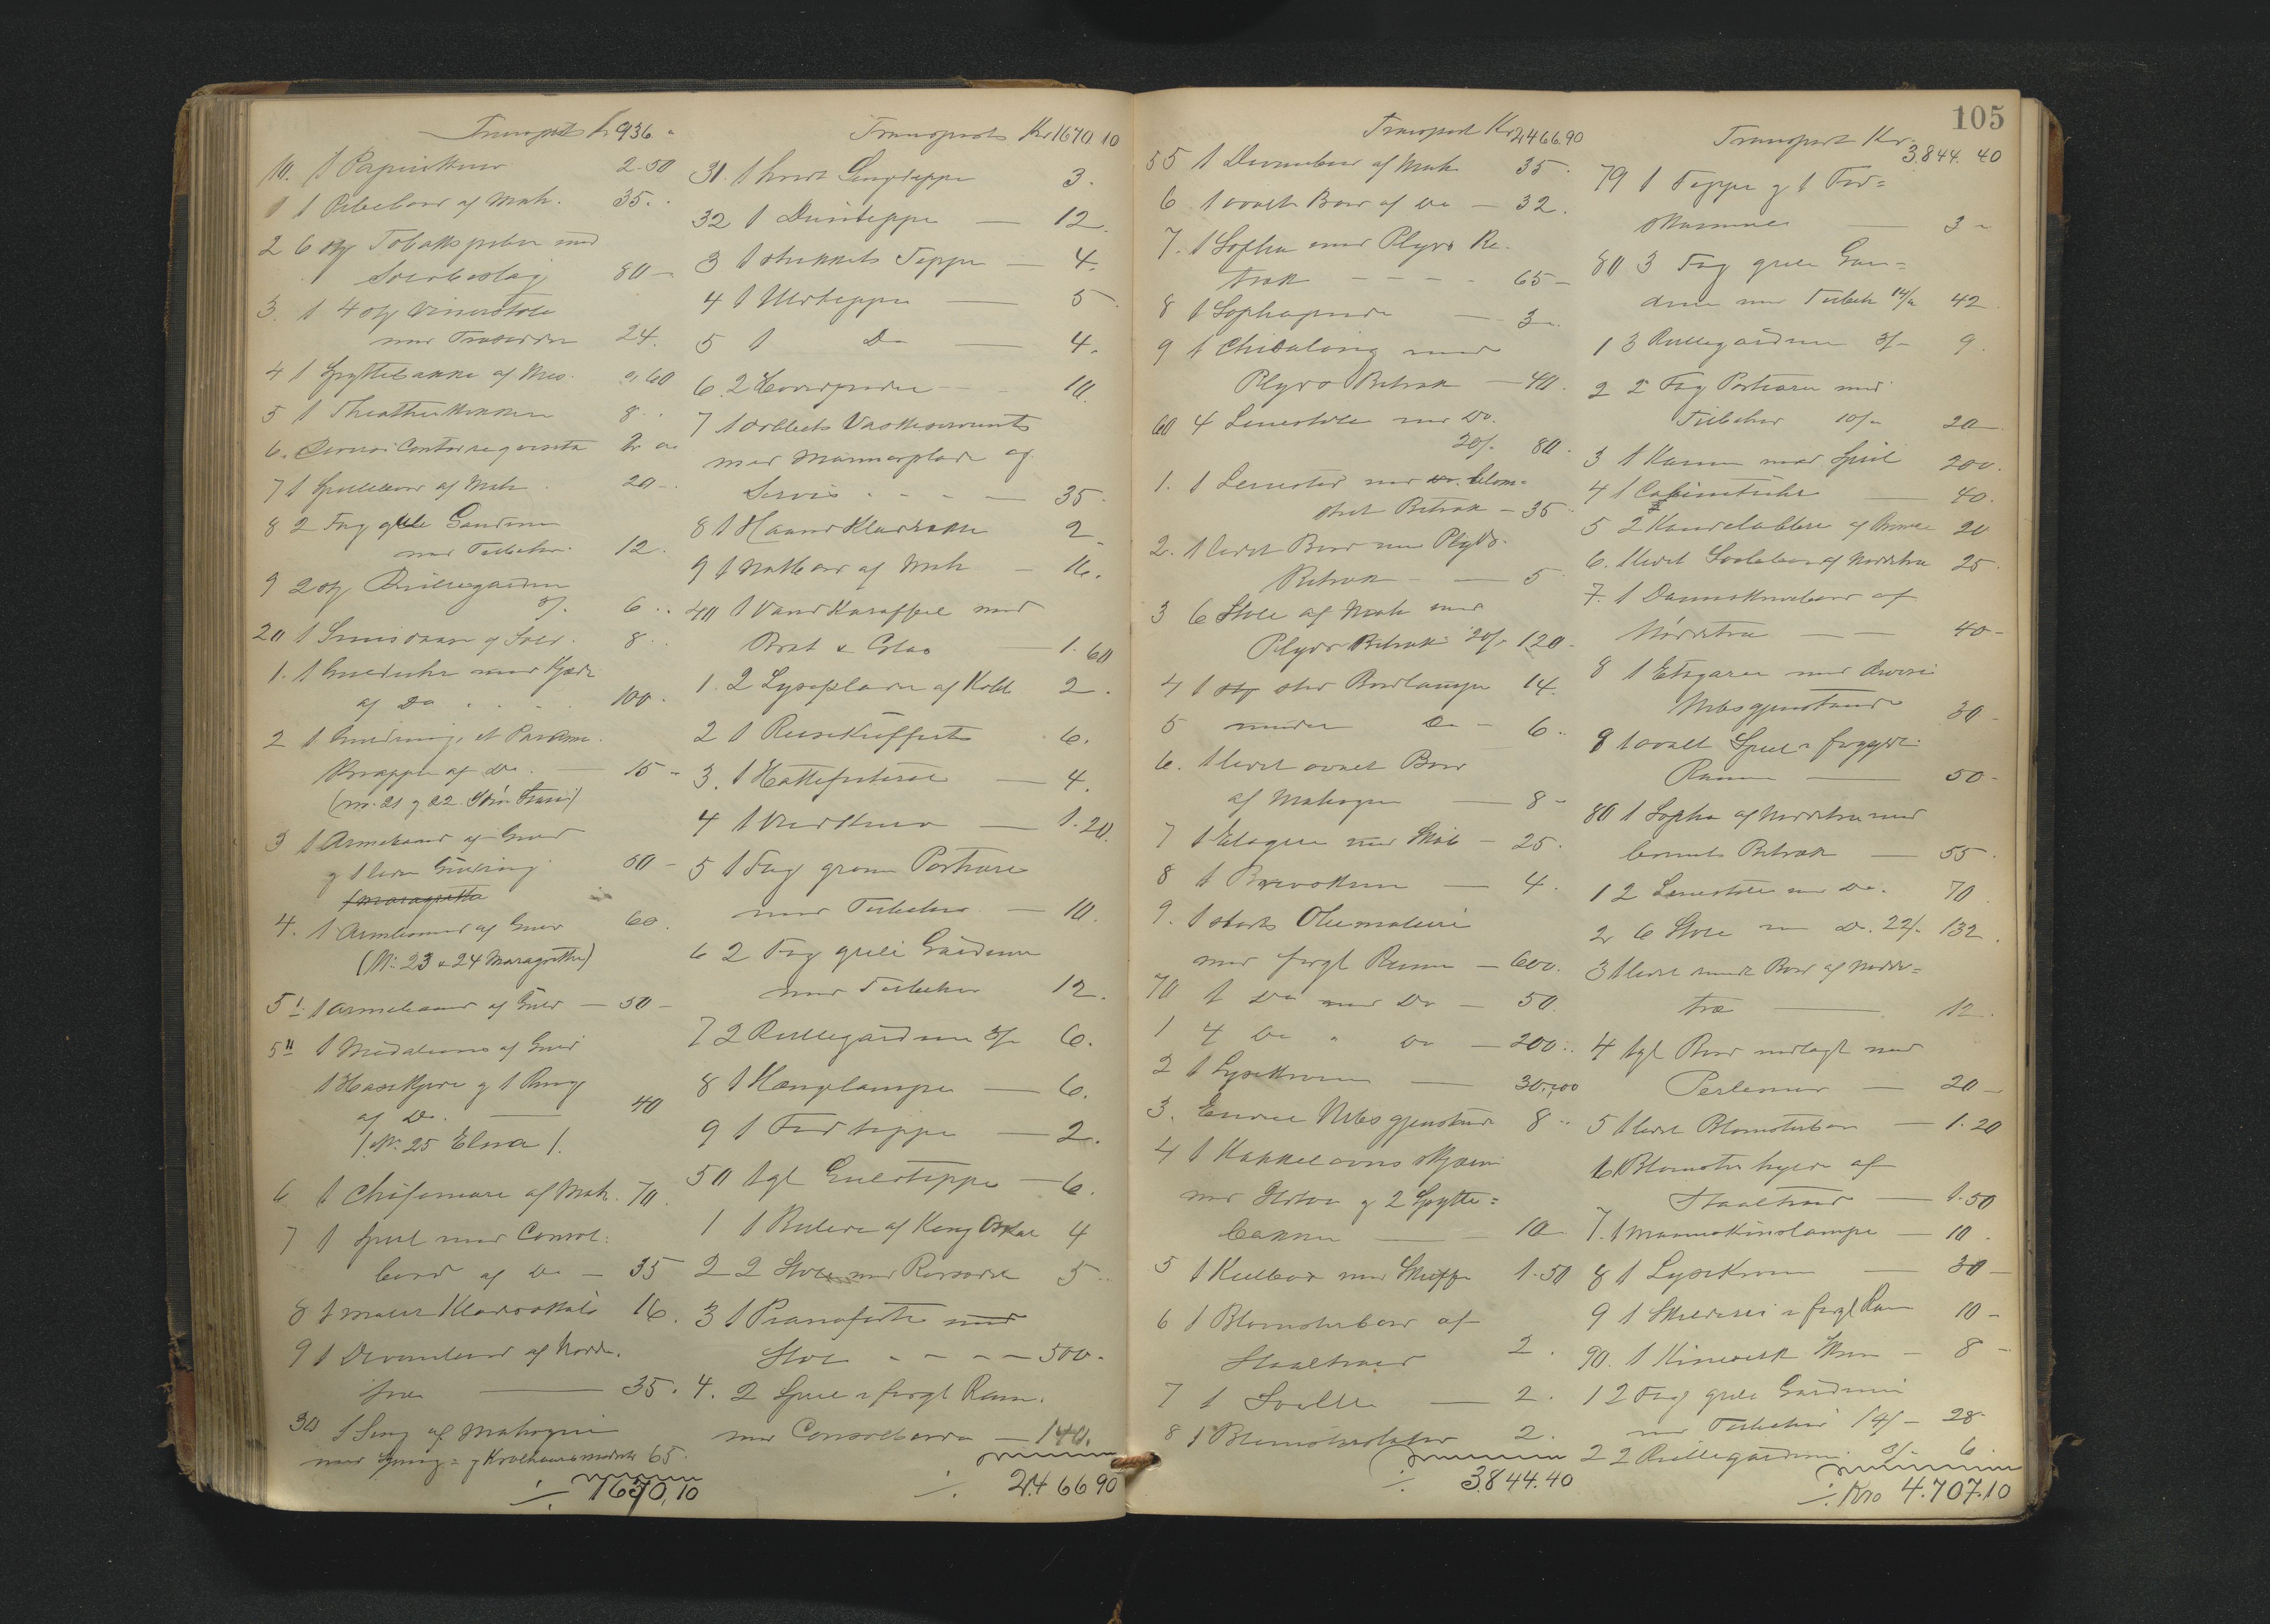 Transport Kr 936 "
10. 1 Papirskurv 2.50
1 1 Pibebord af Mah. 35.
2 6 stk Tobakspiber med
Sølvbeslag 80 -
3. 1 4 stk Vinerstole
med Træsæder 24.
4 1 Spyttebakke af Mes. 0,60
5 1 Theatherkikkert 8 "
6. Diverse Contorreqvisita
7 1 Spillebord af Mah. 20 -
8 2 Fag gule Gardiner
med Tilbehør. 12.
9 2 stk Rullegardiner
3/- 6 "
20 1 Snusdaase af Sølv. 8 "
1. 1 Gulduhr med Kjæde
af Do 100 -
2 1 Guldring, et Par
Knapper af Do. — 15 -
(no. 21 og 22.
3 1 Armbaand af Guld
og 1 liden Guldring 50 -
4. 1 Armbaand af Guld 60.
(No. 23 & 24 Maragrethe)
5 I. 1 Armebaand af Guld — 50 -
5 II 1 Medalion af Guld
1 Halskjæde og 1 Ring
af Do. — 40
(No. 25 Elna).
6 1 Chifoniere af Mah. 70.
7 1 Speil med Consol:
bord af Do — 35
8 1 malet Klædesskab 16.
9 1 Divanbord af Nødde.
træ — 35.
30 1 Seng af Mahogni
med Spring= og Krølhaarsmadrats 65.
./. 1670,10
Transport Kr 1670 10
31. 1 hvidt Sengeteppe 3.
32 1 Duinteppe — 12.
3 1 strikket Teppe — 4.
4 1 Uldteppe — 5
5 1 Do — 4.
6. 2 Hovedpuder — 10.
7 1 dobbelt Vaskeservants
med Marmorplade og
Servis - - - — 35.
8 1 Haandklædrække 2 -
9 1 Natbord af Mah — 16.
40 1 Vandkaraffel med
Bræt & Glas — 1.60
1. 2 Lyseplader af Kobb. 2.
2 1 Reisekuffert 6.
3. 1 Hattefuteral — 4.
4 1 Vedkurv — 1.20.
5 1 Fag grønne Portierer
med Tilbehør — 10.
6 2 Fag gule Gardiner
med Tilbehør 12.
7 2 Rullegardiner 3/- 6.
8 1 Hængelampe — 6.
9 1 Fodteppe — 2.
50 1 gl Gulvteppe — 6.
1 1 Billede af Kong Oskar 4
2 2 Stole med Rørsæder 5 "
3 1 Pianoforte med
Stol - - - — 500 -
4. 2 Speil i forgl Ramme.
med Consolborde — 140.
./. 2466 90
Transport Kr 2466.90
55 1 Damebord af Mah 35.
6 1 ovalt Bord af Do — 32.
7. 1 Sopha med Plyds Be.
træk - - - - 65 -
8 1 Sophapude — 3 "
9 1 Chiselong med
Plyds Betræk — 40.
60 4 Lenestole med Do.
20/- 80.
1. 1 Lenestol med Do. blom=
stret Betræk — 35.
2. 1 lidet Bord med Plyds.
Betræk - — 5
3 6 Stole af Mah med
Plyds Betræk 20/- 120 -
4 1 stor Bordlampe 14.
5 mindre Do — 6 "
6. 1 lidet ovalt Bord
af Mahogni — 8 -
7 1 Etagere med Skab — 25.
8 1 Brevskrin — 4.
9. 1 stort Oliemaleri
med forgl Ramme — 600.
70 1 Do med Do — 50.
1 4 Do " Do — 200 "
2 1 Lysekrone — 30,00
3. Endeel Nipsgjenstande 8 "
4 1 Kakkelovns skjærm
med Ildtøi og 2 Spytte=
bakker — 10
5 1 Kulbox med Skuffe 1.50
6 1 Blomsterbord af
Staaltraad 2.
7 1 Søille — 2.
8 1 Blomsterstativ 2.
./. 3844.40
105
Transport Kr. 3.844. 40
79 1 Teppe og 1 Fod=
skammel — 3 "
80 3 Fag gule Gar=
diner med Tilbeh 14/- 42.
1 3 Rullegardiner 3/- 9.
2 2 Fag Portierer med
Tilbehør 10/- 20
3 1 Kamin med Speil 200.
4 1 Cabinetuhr — 40.
5 2 Kandelabbere af Bronce 20
6. 1 lidet Sophabord af Nøddetræ 25.
7. 1 Dameskrivebord af
Nøddetræ — 40 -
8 1 Etagere med diverse
Nibsgjenstande 30 -
9 1 ovalt Speil i forgyldt
Ramme — 50 -
80 1 Sopha af Nøddetræ med
brunt Betræk — 55.
1 2 Lenestole med Do. 70.
2 6 Stole med Do. 22/- 132.
3 1 lidet rundt Bord af Nødde=
træ — 12.
4 1 gl Bord indlagt med
Perlemor — 20 -
5 1 lidet Blomsterbord — 1.20
6 1 Blomster hylde af
Staaltraad — 1.50
7. 1 Maaneskinslampe — 10.
8 1 Lysekrone — 30 -
9 1 Skilderi i forgl Ram 10 -
90. 1 Kinesisk Skrin — 8 -
1 2 Fag gule Gardiner
med Tilbehør 14/- 28 -
2 2 Rullegardiner 3/- 6.
./. Kro 4.707.10